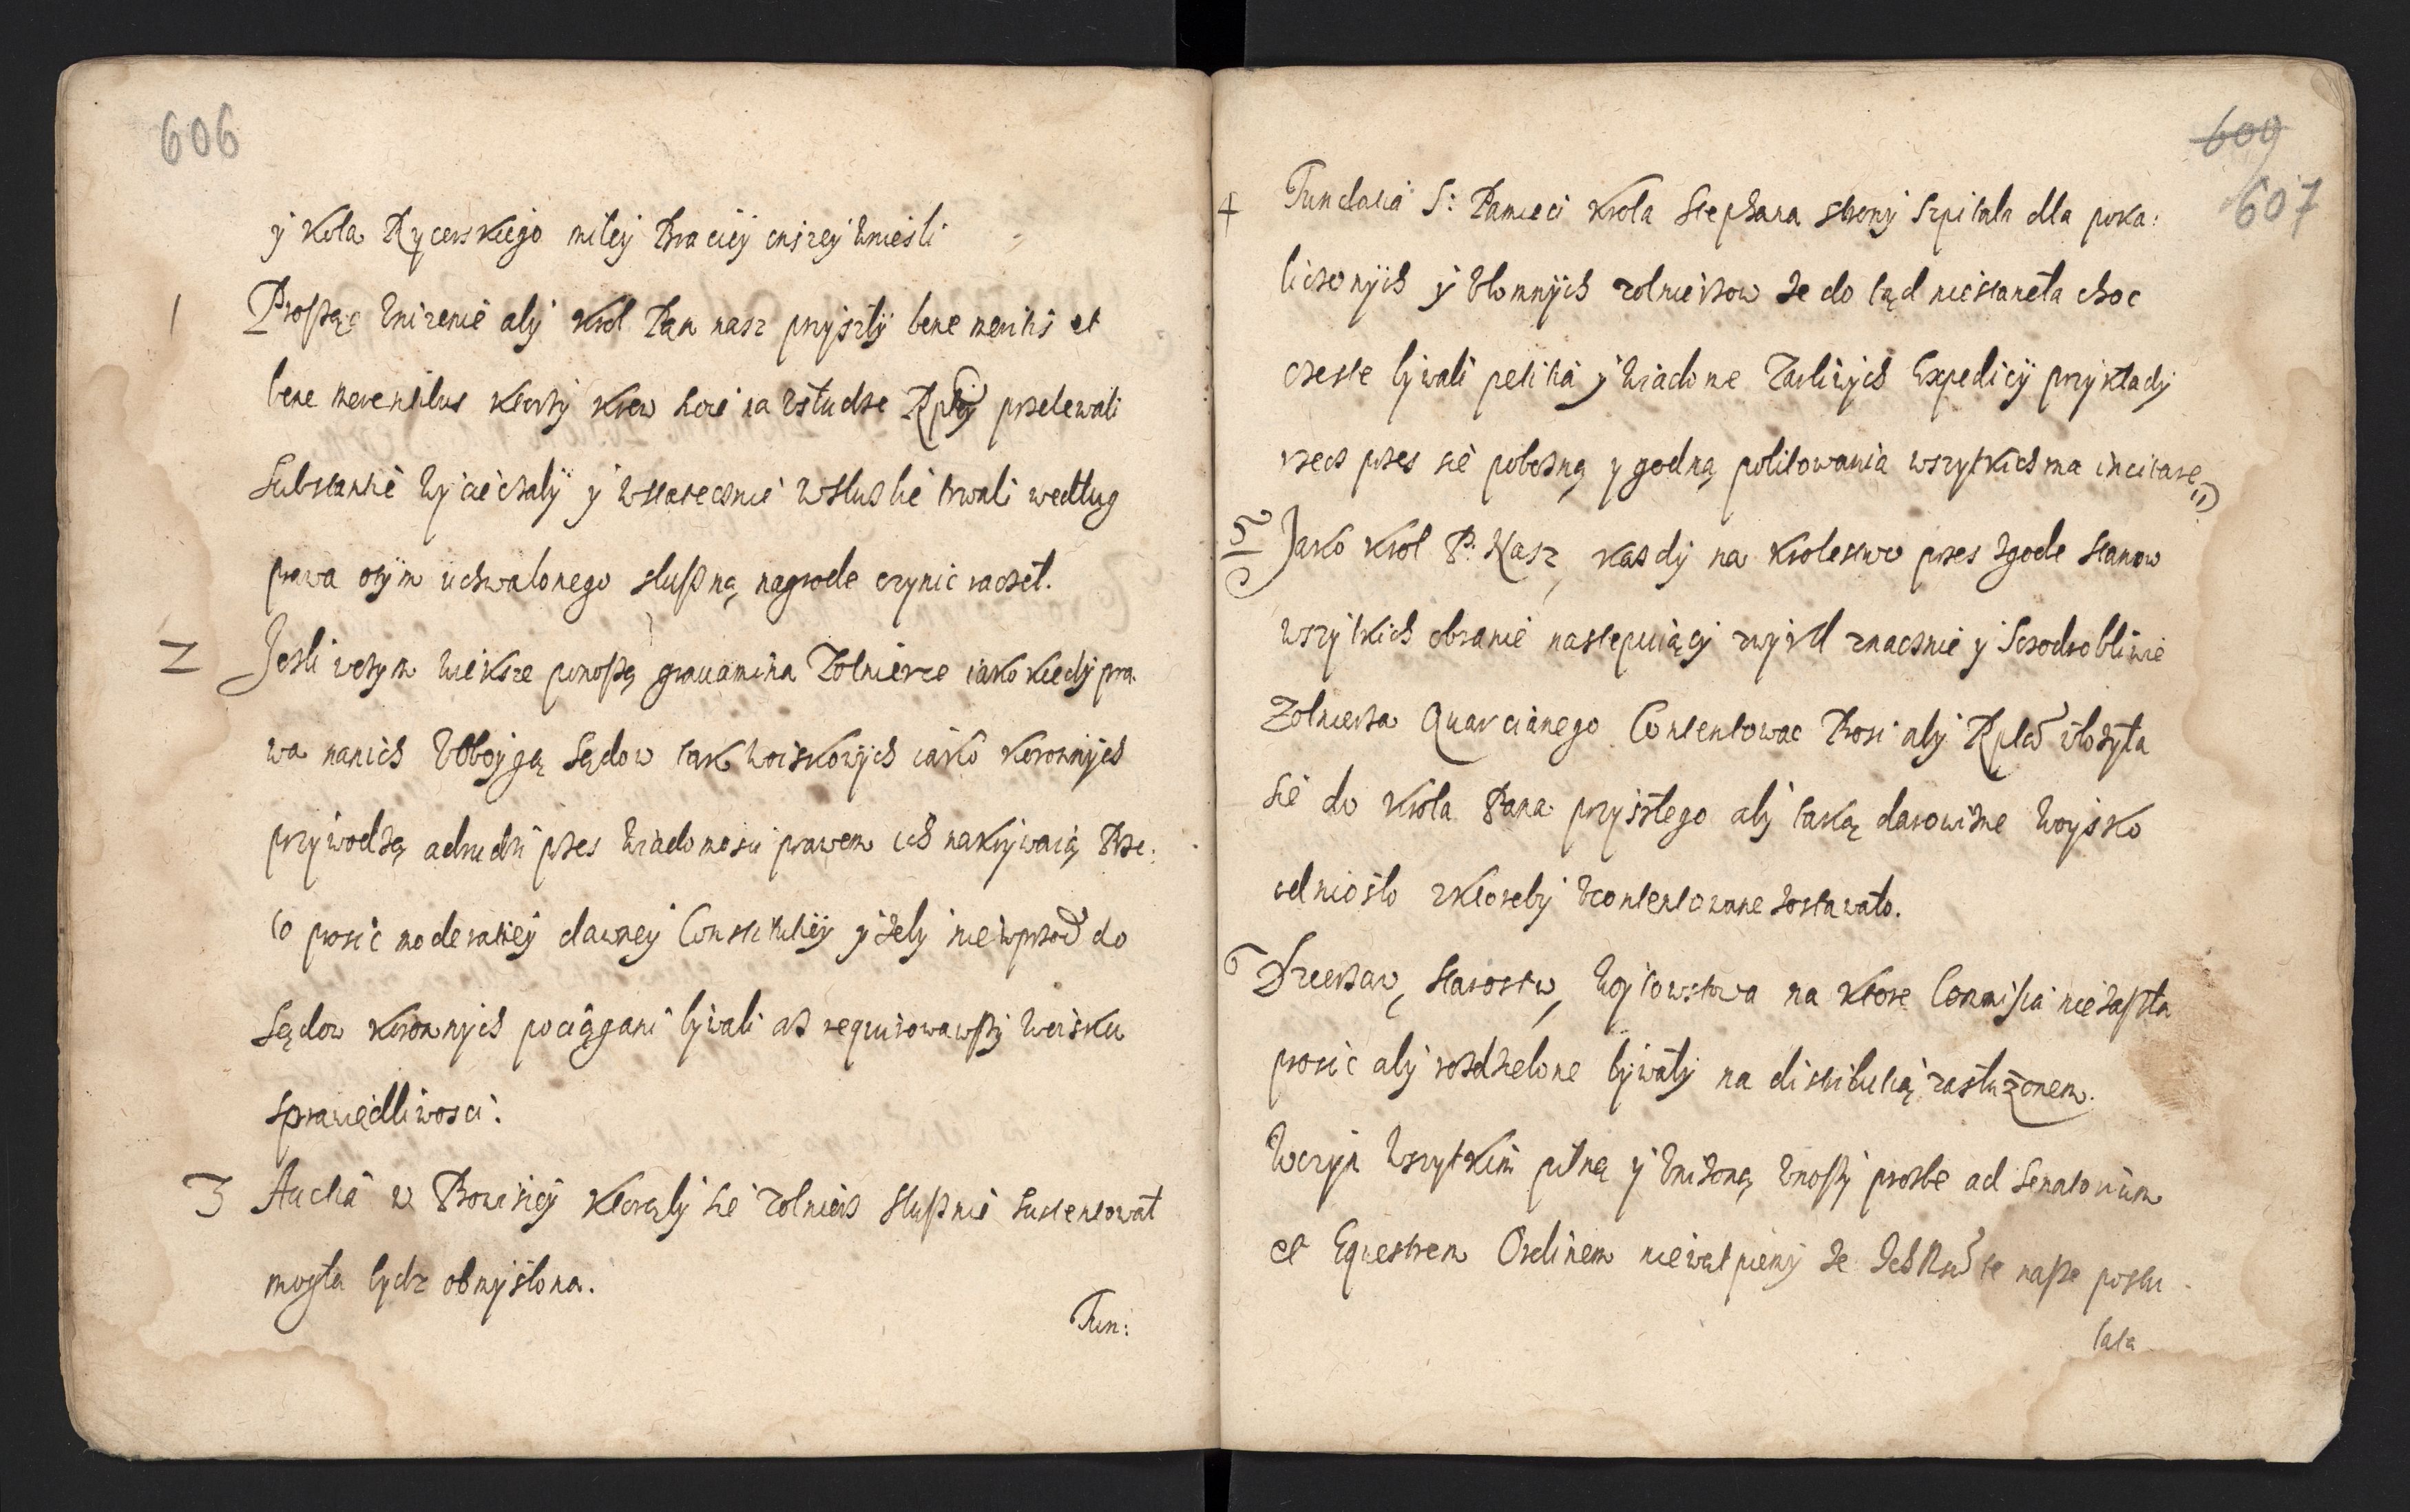 606
y Koła Rycerskiego miłey Braciey inszey wniesli
1 Prosząc uniżenie aby Krol Pan nasz przyszły bene meritis et
bene merentibus ktorzy krew swoię na usłudze Rptey przelewali
Substantie wyciєczały y wstatecznie w służbie trwali według
prawa o tym uchwalonego słuszną nagrode czynic raczeł.
2 Jesli w czym wieksze ponoszą gravamina Zołnierze iako kiedy pra
wa na nich Oboygą Sądow tak woiskowych iako Koronnych
przywodzą a drudzi przes wiadomosci prawem ich nakrywaią Prze:
to prosic moderatiey dawney Constitutiey y zeby nie wprzod do
Sądow Koronnych pociągani bywali az requirowawszy woisku
sprawiedliwosci.
3 Auctia w Prowisiey ktorąby sie zolnierz słusznie sustentował
mogła bydz obmyslona.
Fun:
609
607
4 Fundatia S: Pamieci Krola Stephana strony Szpitala dla poka:
liczonych y Ułomnych zolnierzow ze do tąd niestaneła choc
czeste bywali petitia y wiadome Żarliwych Expedicy przykłady
rzecz przes sie pobożną y godną politowania wszytkich ma incitare
5 Jako Krol P. Nasz, kazdy na Krolestwo przes zgode stanow
wszytkich obranie nastepuiący zwykł znacznie y Sczodrobliwie
Zołnierza Quarcianego Contentowac Prosi aby Rpta włożyła
sie do Krola Pana przyszłego aby taką darowizne woysko
odniosło z ktoreby ucontentowane zostawało.
6 Dzierżaw, starostw, Woytowstwa na ktore Commissia nie zaszła
prosic aby rozdzielone bywały na distributią zasłużonem.
W czym wszytkim pilną y uniżoną wnoszy prozbe ad Senatorium
et Equestrem Ordinem niewątpiemy że te nasze postu
lata